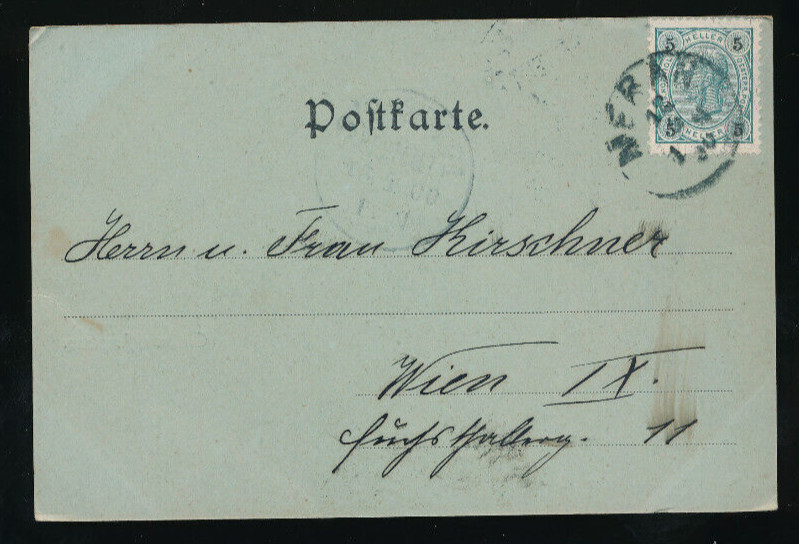 5 HELLER 5
5 HELLER 5
MERAN
Postkarte.
Herrn u. Frau Kirschner
Wien IX.
Fuchsthallerg. 11